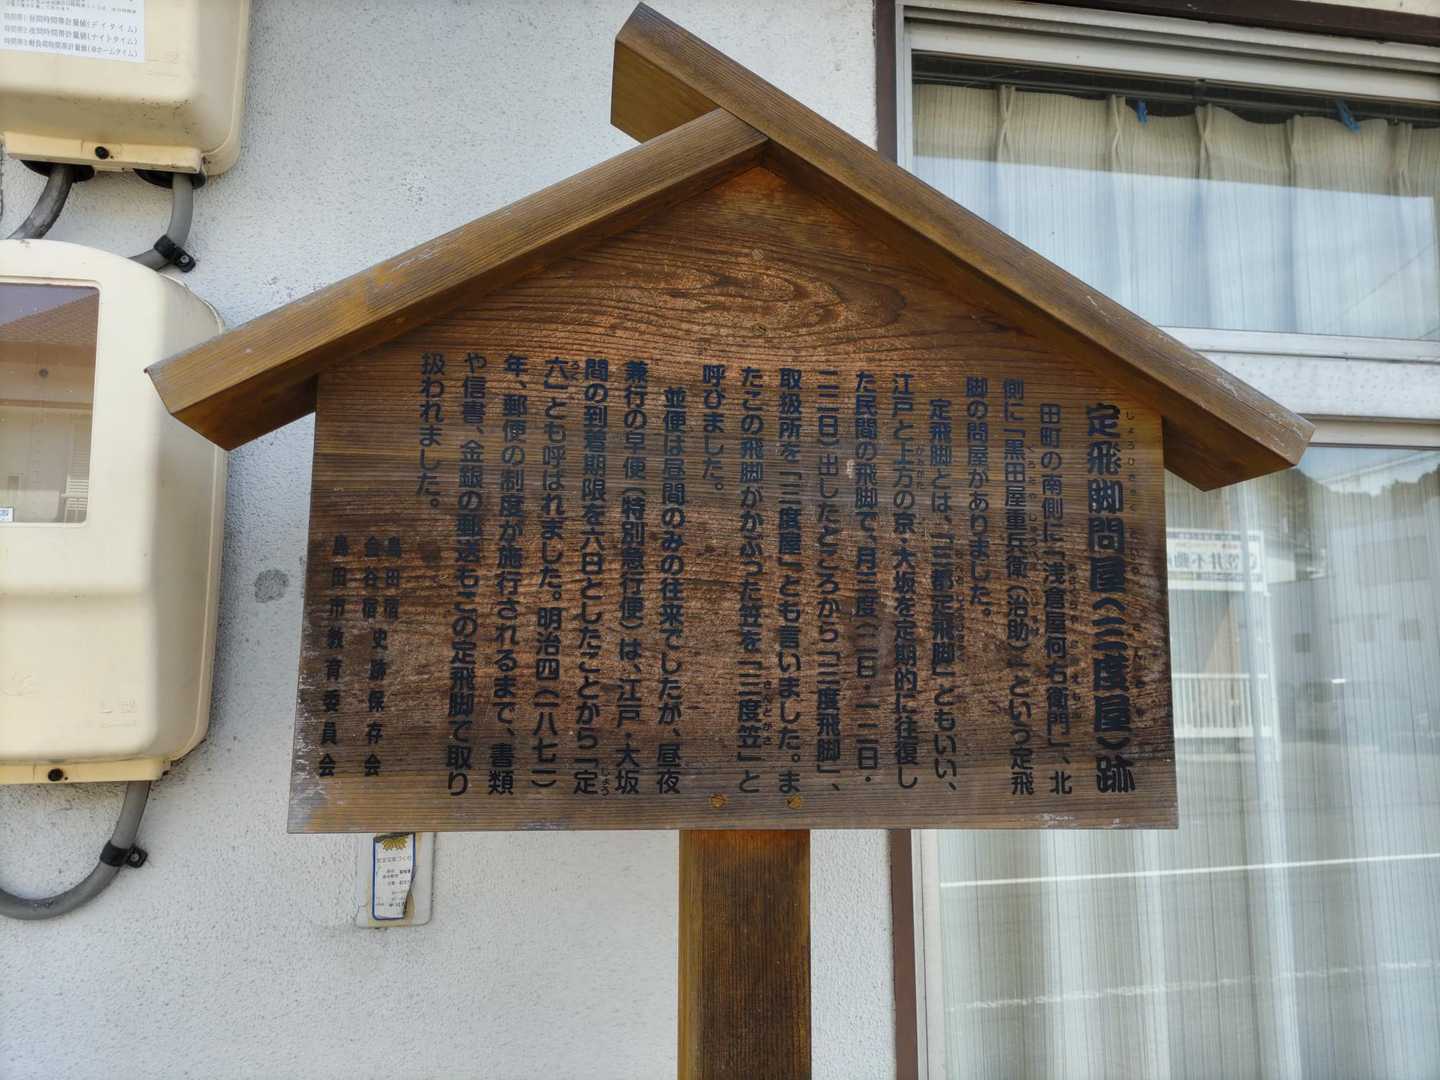 定飛脚問屋(三度屋)跡
田町の南側に「浅倉屋何右衛門」、北
側に「黒田屋重兵衛(治助)」という定飛
脚の問屋がありました。
定飛脚とは、「三都定飛脚」ともいい、
江戸と上方の京・大坂を定期的に往復し
た民間の飛脚で、月三度(二日・一二日・
二二日)出したところから「三度飛脚」、
取扱所を「三度屋」とも言いました。ま
たこの飛脚がかぶった笠を「三度笠」と
呼びました。
並便は昼間のみの往来でしたが、昼夜
兼行の早便(特別急行便)は、江戸・大坂
間の到着期限を六日としたことから「定
六」とも呼ばれました。明治四(一八七一)
年、郵便の制度が施行されるまで、書類
や信書、金銀の郵送もこの定飛脚で取り
扱われました。
島田宿
金谷宿 史跡保存会
島田市教育委員会